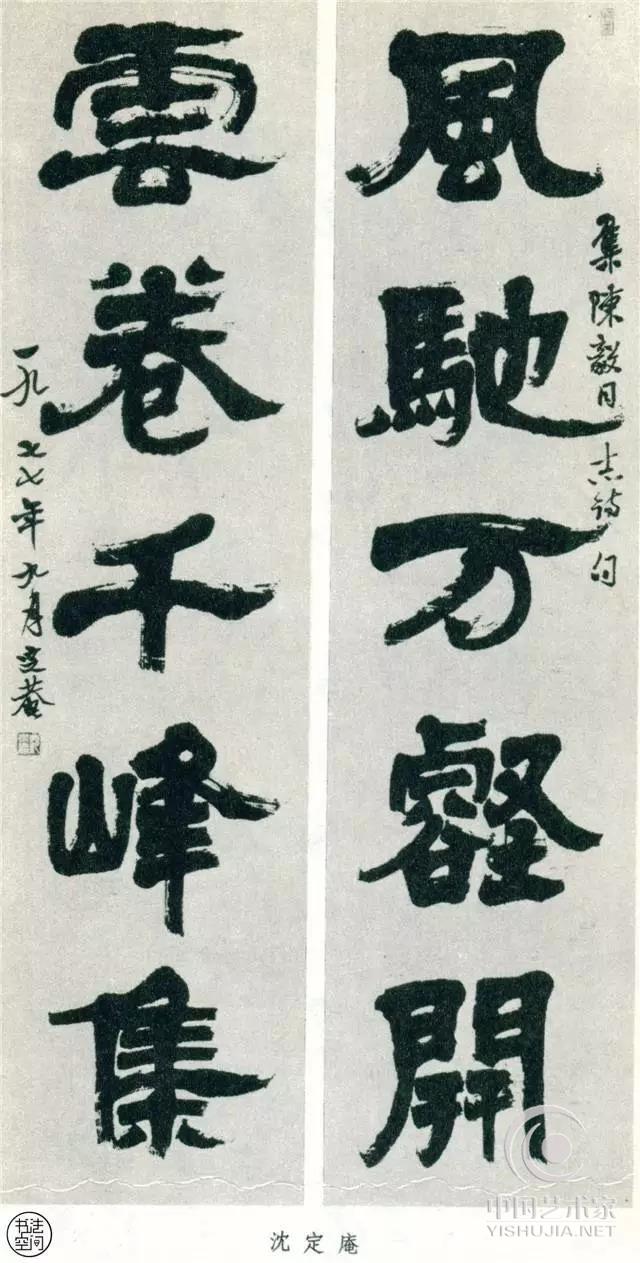 風馳万壑開
集陳毅同志詩句
雲卷千峰集
一九七七年九月定菴
沈定庵
书法空间
中国艺术家
YISHUJIA.NET